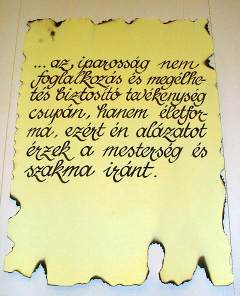 ... az, iparosság nem
foglalkozás és megélhe-
tés biztosító tevékenység
csupán, hanem életfor-
ma, ezért én alázatot
érzek a mesterség és
szakma iránt.